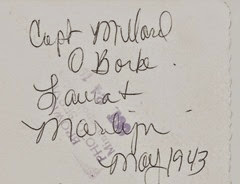 Capt Millard
O Borke.
Laura +
Marilyn
May 1943